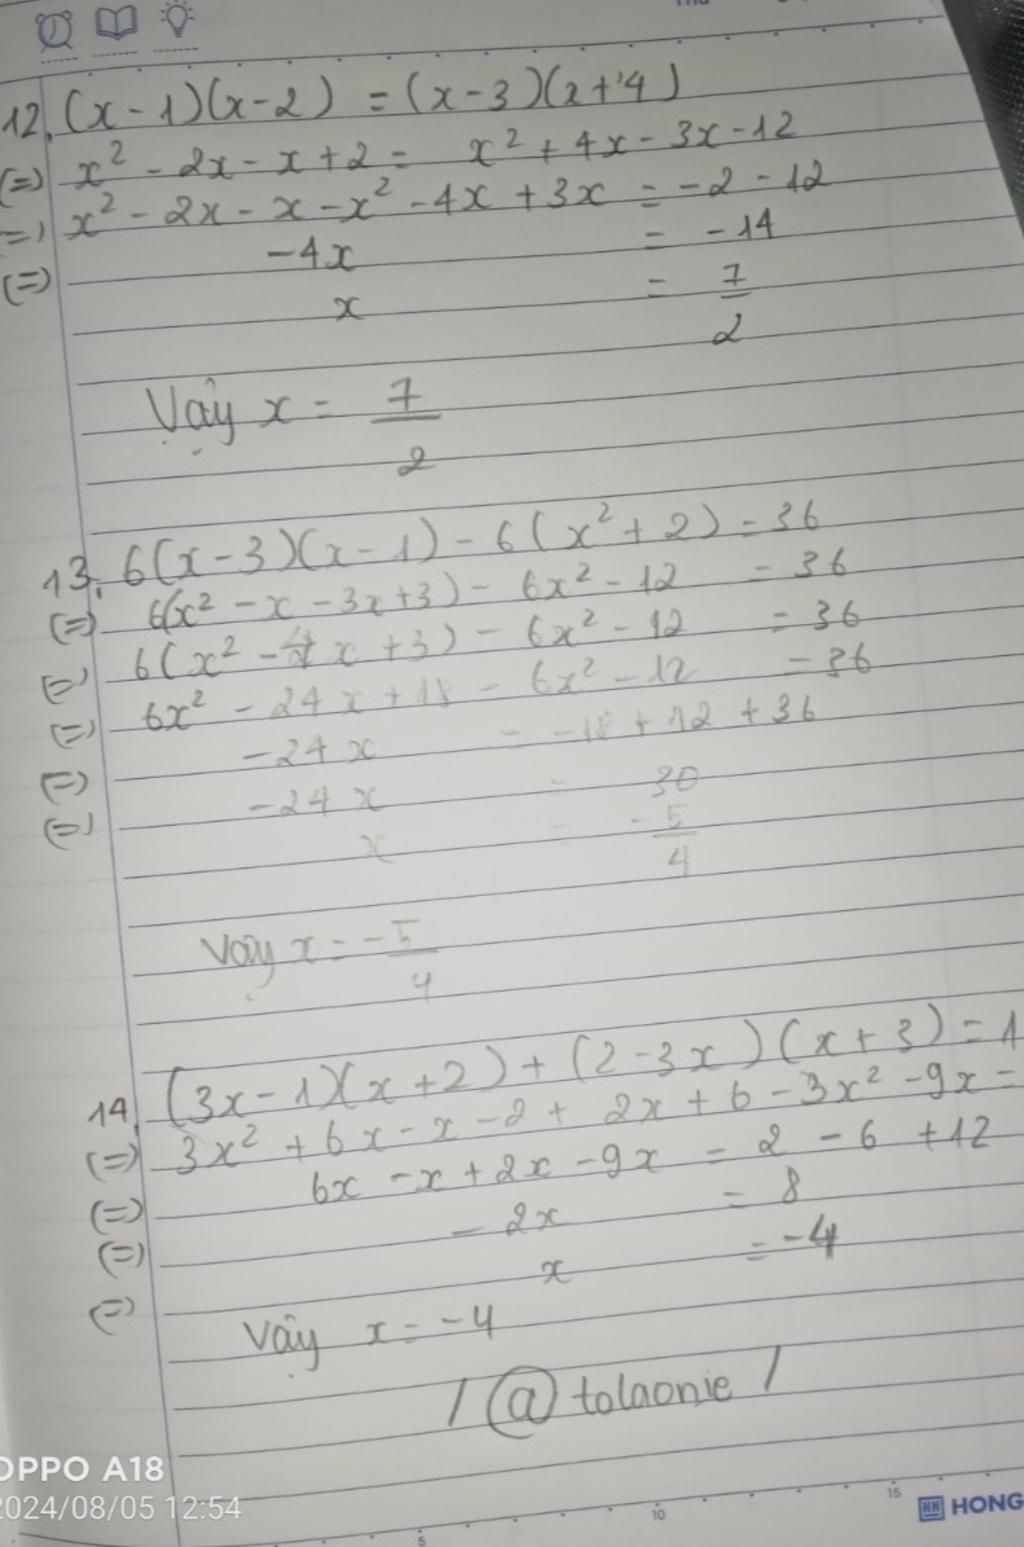 12. (x-1)(x-2) = (x-3)(x+4)
(=) x² - 2x - x + 2 = x² + 4x - 3x - 12
(=) x² - 2x - x - x² - 4x + 3x = -2 - 12
(=) -4x = -14
x = 7/2
Vậy x = 7/2
13. 6(x-3)(x-1) - 6(x²+2) = 36
(=) 6(x² - x - 3x + 3) - 6x² - 12 = 36
(=) 6(x² - 4x + 3) - 6x² - 12 = 36
(=) 6x² - 24x + 18 - 6x² - 12 = 36
(=) -24x = -18 + 12 + 36
(=) -24x = 30
x = -5/4
Vậy x = -5/4
14. (3x-1)(x+2) + (2-3x)(x+3) = 1
(=) 3x² + 6x - x - 2 + 2x + 6 - 3x² - 9x =
(=) 6x - x + 2x - 9x = 2 - 6 + 12
(=) -2x = 8
(=) x = -4
Vậy x = -4
/ @ tolaonie /
OPPO A18
2024/08/05 12:54
5 10 15
HONG